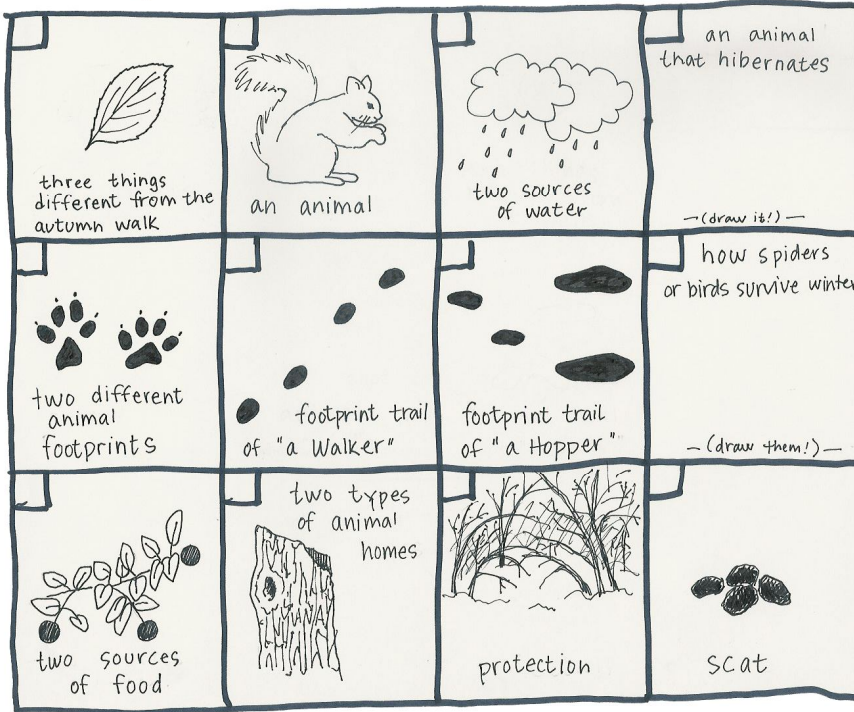 three things
different from the
autumn walk
an animal
two sources
of water
an animal
that hibernates
—(draw it!)—
two different
animal
footprints
footprint trail
of "a Walker"
footprint trail
of "a Hopper"
how spiders
or birds survive winter
—(draw them!)—
two sources
of food
two types
of animal
homes
protection
scat